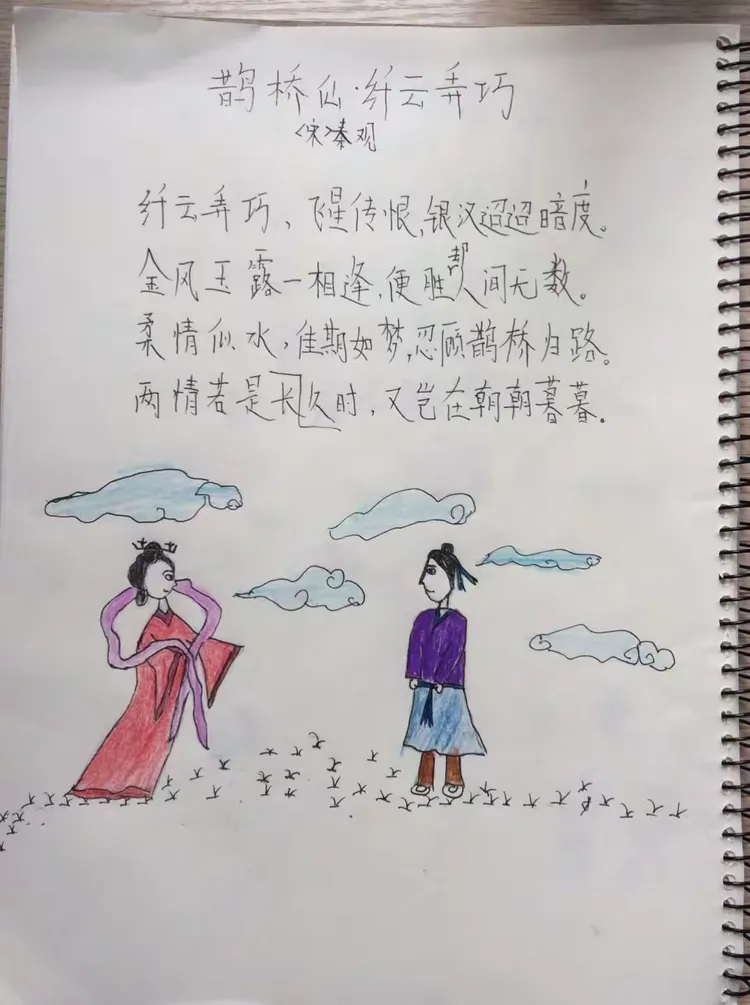 鹊桥仙·纤云弄巧
<宋>秦观
纤云弄巧、飞星传恨,银汉迢迢暗度。
金风玉露一相逢,便胜却人间无数。
柔情似水,佳期如梦,忍顾鹊桥归路。
两情若是长久时,又岂在朝朝暮暮。